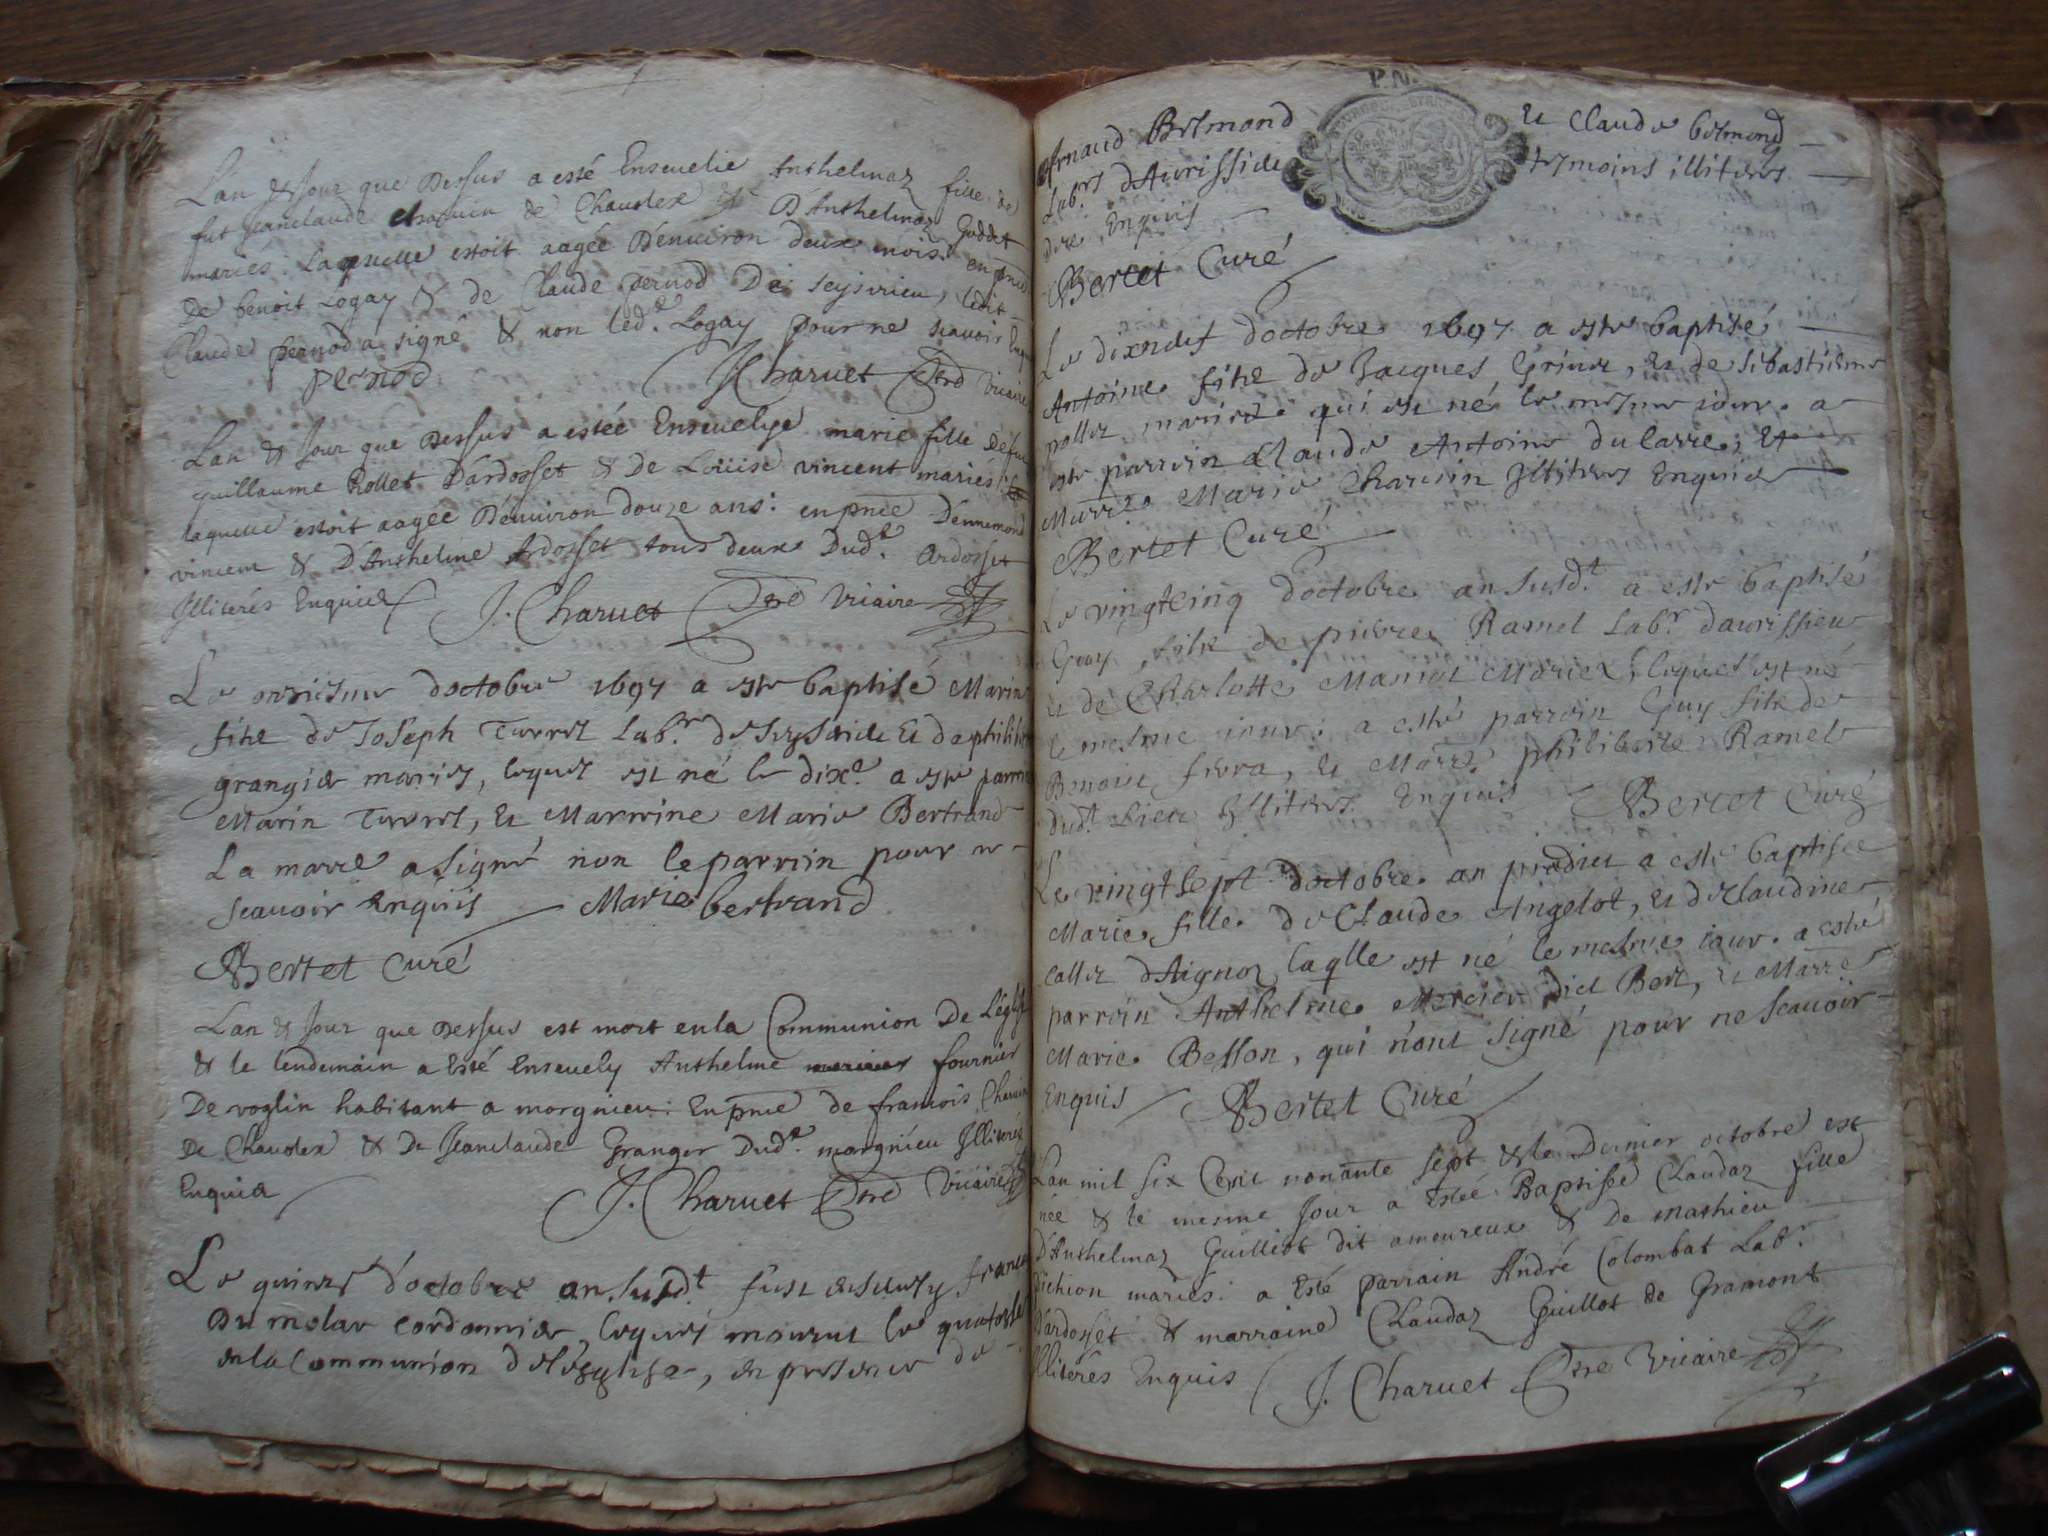 L'an & Jour que Dessus a esté Ensevelie Anthelmaz fille de
fut Jeanclaude de Chauolex & D'Anthelmaz Goddet
mariés: Laquelle estoit aagée D'enuiron deux mois: en pnce
De benoit Logay & de Claude pernod De seyssrieu, ledit
Claude pernod a signé & non led.t Logay pour ne scauoir Enquis
pernod J Charuet ptre Vicaire
Lan & Jour que Dessus a estée Enseuelye marie fille De fut
guillaume Rollet D'ardosset & De Loüise vincent mariés:
laquelle estoit aagée D'enuiron douze ans: en pnce D'ennemond
vincent & D'Anthelme Ardosset tous deux Dud.t Ardosset
Illiterés Enquis J. Charuet ptre Vicaire
Le onziesme doctobre 1697 a este baptisé Marin
fils de Joseph Turrel Lab.r de & de philiberte
grangier mariés, lequel est né le dix.e a este parrin
Marin Turrel, et Marrine Marie Bertrand
La marre a signé non le parroin pour ne
scauoir Enquis Marie bertrand
Bertet Curé
Lan & Jour que Dessus est mort en la Communion De L'église
& le lendemain a Esté Enseuely Anthelme fournier
De voglin habitant a morgnieu: En pnce de francois Charuin
De Chauolex & De Jeanclaude Granger Dud.t morgnieu Illiterés
Enquis J. Charuet ptre Vicaire
Le quinze d'octobre an susd.t fust enseuely francois
Du molar cordonnier, lequel mourut le quatorse
en la Communion de léglise, en presence de
P.N.
Arnaud Belmond et Claude belmond
Lab.rs dAurissieu tesmoins illiteres
Enquis
Bertet Curé
Le dixneuf doctobre 1697 a este baptisé
Antoine fils de Jacques Grinet, et de sebastienne
pollet mariés qui est né le mesme iour. a
este parroin Claude Antoine du Carre, Et
Marrre Marie Charuin Illiteres Enquis
Bertet Curé
Le vingtcinq doctobre an susd.t a este baptisé
Guy, fils de pierre Ramel Lab.r daurissieu
et de Charlotte Maniot Mariez, lequel est né
le mesme iour: a esté parroin Guy fils de
Benoit et Marre philiberte Ramel
dud.t Lieu Illiteres Enquis Bertet Curé
Le vingt sept doctobre an predict a esté baptisee
Marie fille de Claude Angelot, et de Claudine
callet dAignoz laqlle est né le mesme iour. a esté
parroin Anthelme Mercier dict Bert, et Marre
Marie Besson, qui n'ont signé pour ne scauoir
Enquis Bertet Curé
Lan mil six Cent nonante sept & le Dernier octobre est
née & le mesme Jour a Estée Baptisée Claudaz fille
D'Anthelmaz Guilliot dit amoureux & De mathieu
pichion mariés: a Esté parrain André Colombat Lab.r
D'ardosset & marraine Claudaz Guillot de Gramont
Illiterés Enquis J. Charuet ptre Vicaire